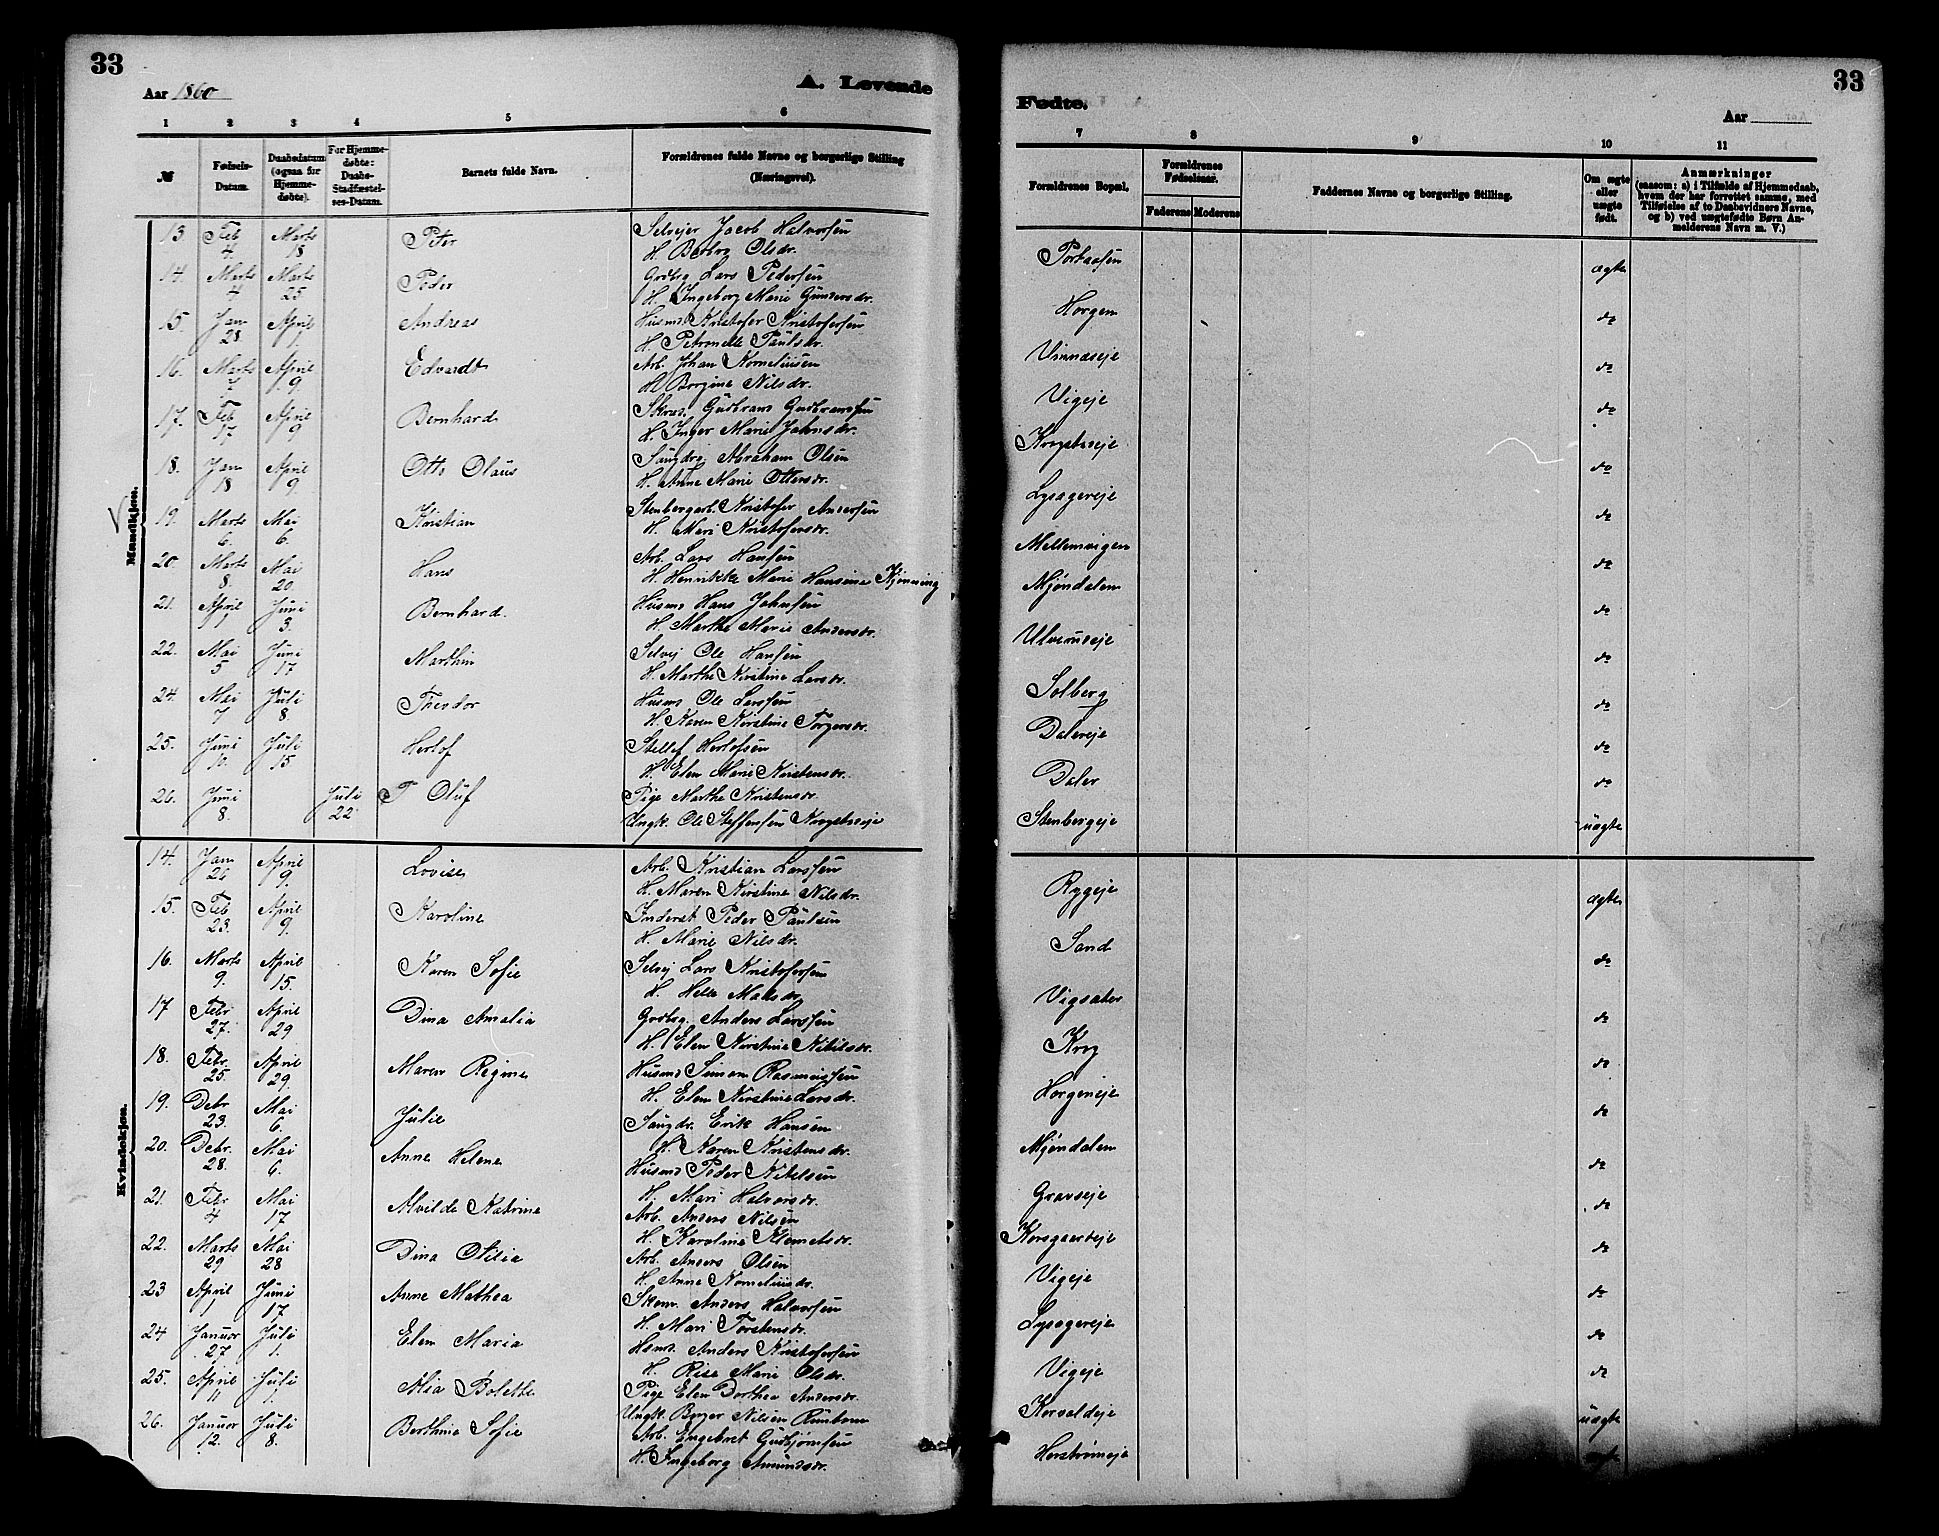 33
Aar 1860
A. Levende
1 2 3 4 5 6
№
Fødsels-Datum.
Daabsdatum (ogsaa for Hjemme-døbte).
For Hjemme-døbte: Daabs-Stadfæstel-ses-Datum.
Barnets fulde Navn.
Forældrenes fulde Navne og borgerlige Stilling (Næringsvei).
Mandkjøn.
13. Feb 4. Marts 18 Peter Selvejer Jacob Halvorsen
H. Berteg Olsdr.
14. Marts 4 Marts 25. Peder Grdbrg. Lars Pedersen
H. Ingeborg Marie Gundersdr.
15. Jan 28. April Andreas Husmd. Kristofer Kristofersen
H. Petronelle Paulsdr.
16. Marts 7 April 9. Edvardt Arb. Johan Kornelíusen
H. Bergine Nilsdr.
17. Feb 17 April 9 Bernhard Skræd. Gudbrand Gudbrandsen
H. Inger Marie Johnsdr.
18. Jan 18 April 9. Otto Olaus Saugdrg. Abraham Olsen
H. Anne Marie Ottersdr.
19. Marts 6. Mai 6. Kristian Stenbergarb. Kristofer Andersen
H. Mari Kristofersdr.
20. Marts 8. Mai 20. Hans Arb. Lars Hansen
H. Henrikke Marie Hansine Kjønning
21. April 1 Juni 3. Bernhard. Husmd Hans Johnsen
H. Marthe Marie Andersdr.
22. Mai 5 Juni 17 Marthin Selvej Ole Hansen
H. Marthe Kirstine Larsdr.
24. Mai 7 Juli 8. Theodor Husmd Ole Larssen
H. Karen Kirstine Torgersdr.
25. Juni 10. Juli 15. Herlof Stellef Herlofsen
H. Elen Marie Kirstensdr.
26. Juni 8. Juli 22 T Oluf Pige Marthe Kristensdr.
Ungk. Ole Steffensen Krogstadeje
Kvindekjøn.
14. Jan 26 April 9. Lovise Arb. Kristian Larssen
H. Maren Kirstine Nilsdr.
15. Feb 23. April 9. Karoline Inderst Peder Paulsen
H. Marie Nilsdr.
16. Marts 9. April 15. Karen Sofie Selvej Lars Kristofersen
H. Helle Madsdr.
17 Febr 27. April 29 Dina Amalia Grdbrg. Anders Larssen
H. Elen Kirstine Nikelsdr.
18. Febr. 25. April 29. Maren Regine Husmd Simon Rasmussen
H. Elen Kirstine Larsdr.
19. Debr 23. Mai 6. Julie Saugdr. Erik Hansen
H. Karen Kristensdr.
20. Debr. 28. Mai 6. Anne Helene Husmd Peder Nikelsen
H. Mari Halvorsdr.
21. Febr 4 Mai 17 Alvilde Katrine Arb. Anders Nilsen
H. Karoline Klemetsdr.
22. Marts 29 Mai 28 Dina Otilia Arb. Anders Olsen
H. Anne Korneliusdr.
23 April 1 Juni 17 Anne Mathea Skom. Anders Halvorsen
H. Mari Torstensdr.
24 Januar 27 Juli 1. Elen Maria Husmd. Anders Kristofersen
H. Rise Marie Olsdr.
25. April 11 Juli 1. Mia Bolette Pige Elen Dorthea Andersdr.
Ungk. Borger Nilsen Rundom
26. Januar 12. Juli 8. Berthine Sofie Arb. Engebret Gudbjørnsen
H. Ingeborg Amundsdr.
Fødte.
33
Aar
7 8 9 10 11
Forældrenes Bopæl.
Forældrenes Fødselsaar.
Faderens Moderens
Faddernes Navne og borgerlige Stilling.
Om ægte eller uægte født.
Anmærkninger
(saasom: a) i Tilfælde af Hjemmedaab, hvem der har forrettet samme, med Tilføielse af to Daabsvidners Navne, og b) ved uægtefødte Børn An-melderens Navn m. V.)
Portaasen ægte
Horgen do
Vinnæseje do
Vigeje do
Krogstadeje do
Lysagereje do
Mellemvigen do
Mjøndalen do
Ulverudeje do
Solberg do
Dalereje do
Daler do
Stenbergeje uægte
Ryggeje ægte
Sand do
Vigsæter do
Krog do
Horgeneje do
Mjøndalen do
Gravseje do
Korsgaardeje do
Vigeje do
Lysagereje do
Vigeje do
Korvaldeje uægte
Herstrømeje ægte